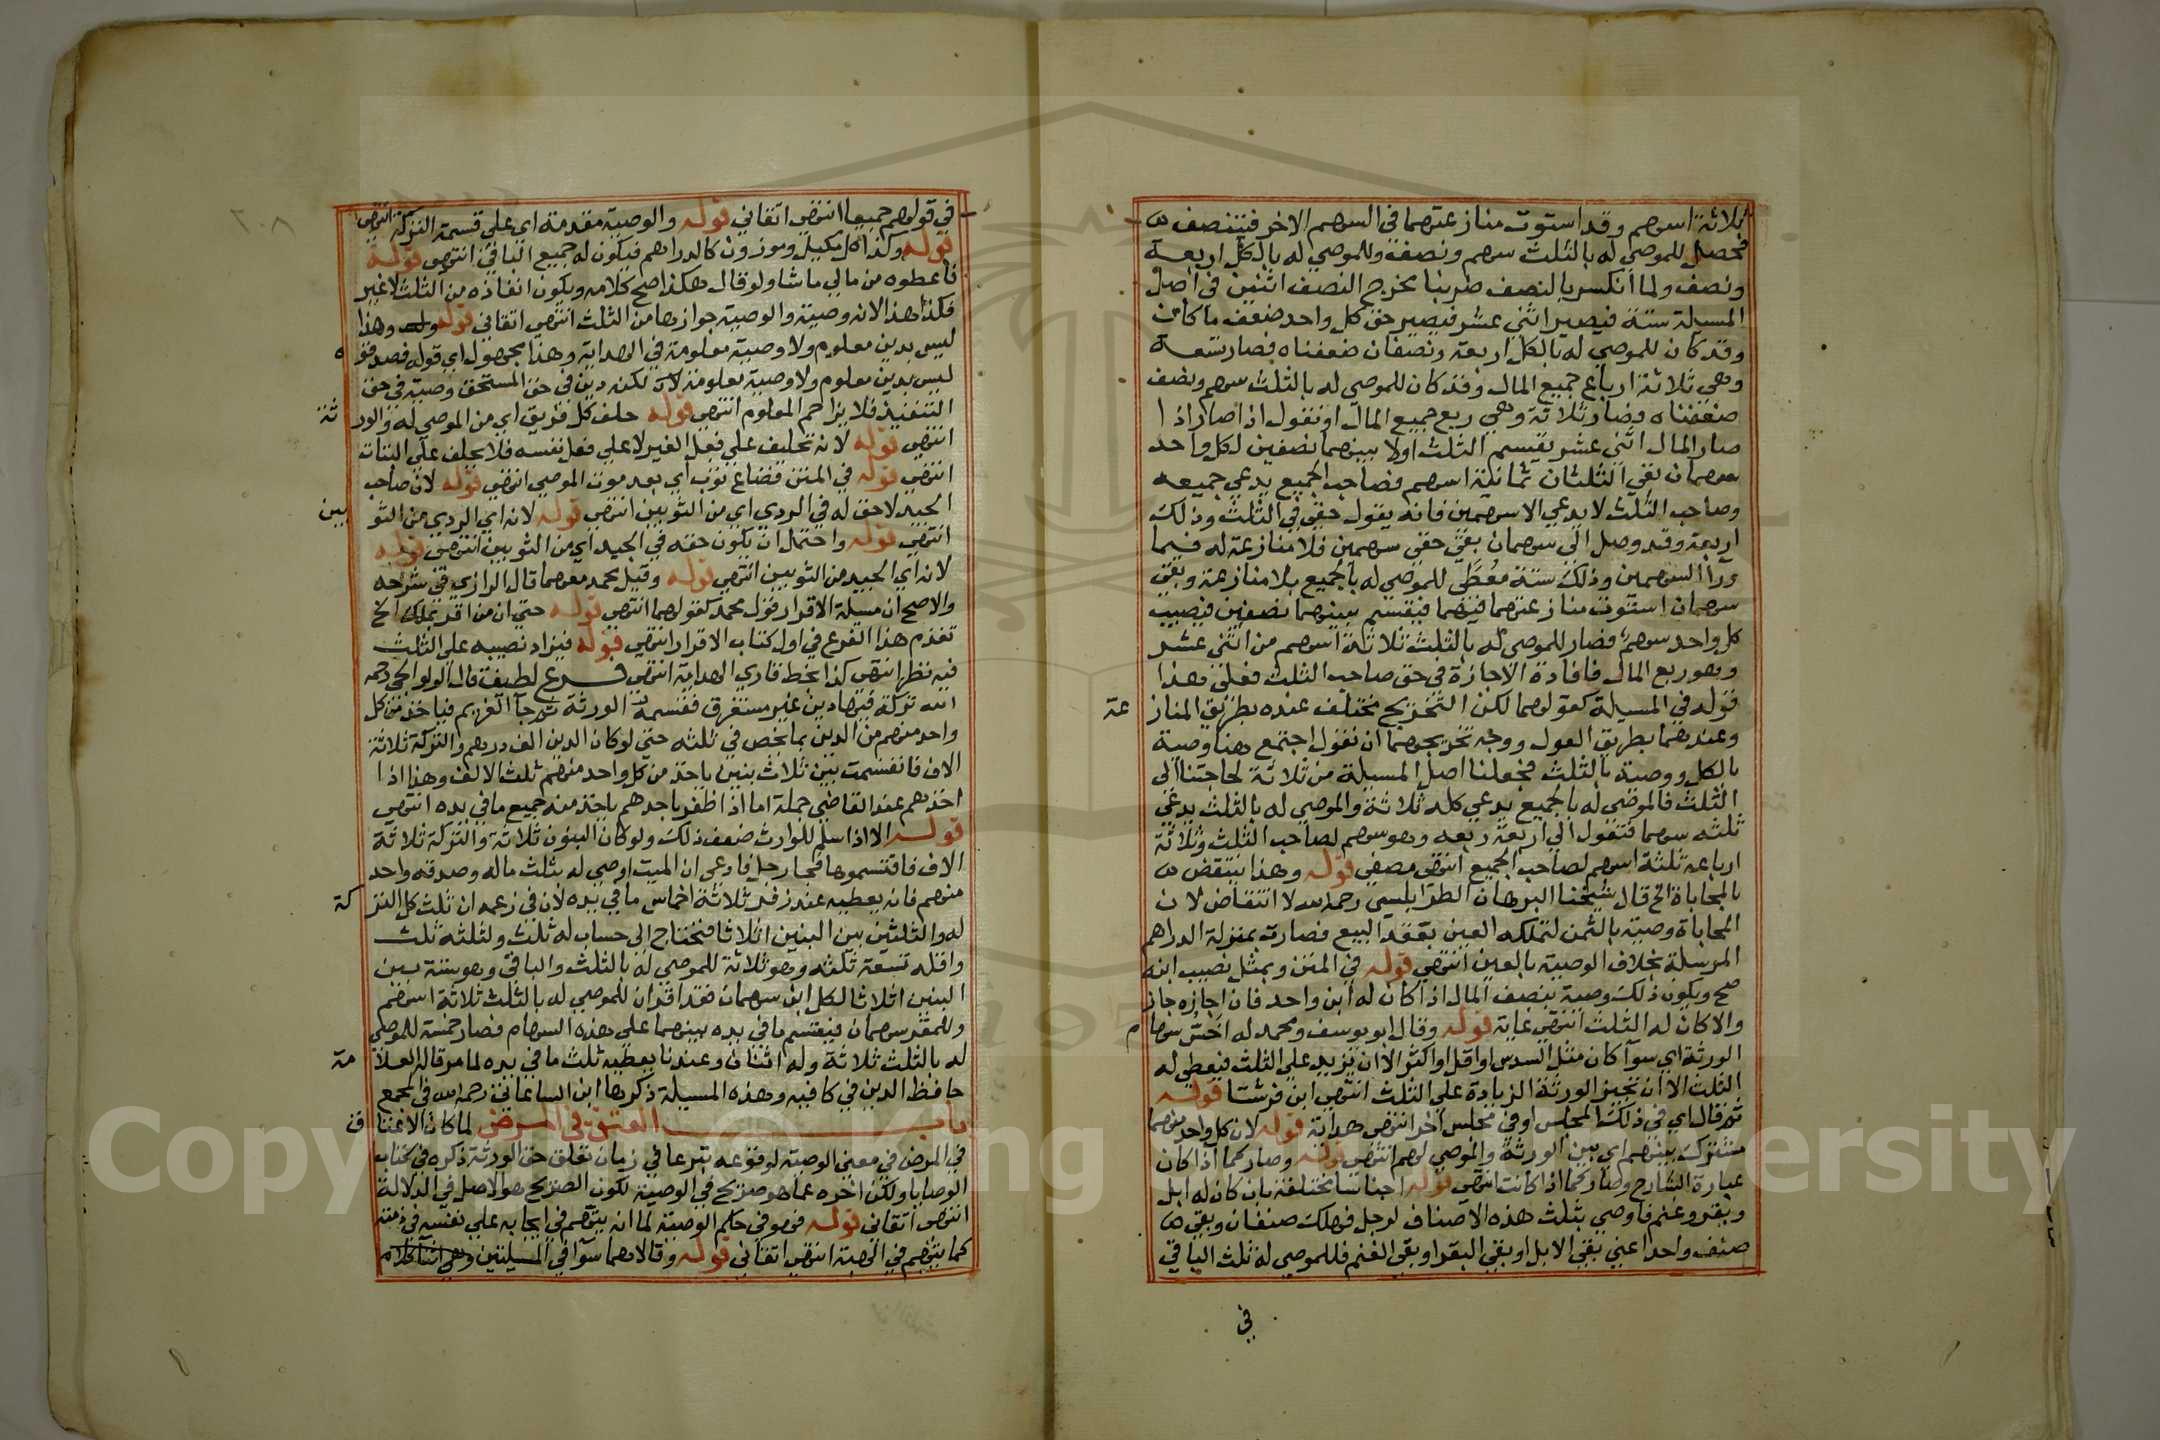 ثلاثة اسهم وقد استوت منازعتهما في السهم الاخر فيتنصف
فحصل للموصي له بالثلث سهم ونصف وللموصي له بالكل اربعة
ونصف ولما انكسر بالنصف ضربنا مخرج النصف اثنين في اصل
المسيلة ستة فيصير اثني عشر فيصير حق كل واحد ضعف ما كان
وقد كان للموصي له بالكل اربعة ونصفان ضعفناه فصار تسعة
وهي ثلاثة ارباع جميع المال وقد كان للموصي له بالثلث سهم ونصف
ضعفناه فصار ثلاثة وهي ربع جميع المال او نقول اذا صار اذا
صار المال اثني عشر يقسم الثلث اولا بينهما نصفين لكل واحد
سهمان بقي الثلثان ثمانية اسهم فصاحب الجميع يدعي جميعه
وصاحب الثلث لا يدعي الا سهمين فانه يقول حقي في الثلث وذلك
اربعة وقد وصل الي سهمان بقي حقي سهمين فلا منازعة له فيما
ورآ السهمين وذلك ستة معطي للموصي له بالجميع بلا منازعة وبقي
سهمان استوت منازعتهما فيهما فيقسم بينهما نصفين فنصيب
كل واحد سهم فصار للموصي له بالثلث ثلاثة اسهم من اثني عشر
وهو ربع المال فافادة الاجازة في حق صاحب الثلث فعلي هذا
قوله في المسيلة كقولهما لكن التخريج مختلف عنده بطريق المناز
عة
وعندهما بطريق العول ووجه تخريجهما ان نقول اجتمع هنا وصية
بالكل ووصية بالثلث فجعلنا اصل المسيلة من ثلاثة لحاجتنا الي
الثلث فالموصي له بالجميع يدعي كله ثلاثة والموصي له بالثلث يدعي
ثلثه سهما فتعول الي اربعة ربعه وهو سهم لصاحب الثلث وثلاثة
ارباعه ثلثة اسهم لصاحب الجميع انتهي مصفي قوله وهذا ينتقض
بالمحاباة الخ قال شيخنا البرهان الطرابلسي رحمه الله لا انتقاض لان
المحاباة وصية بالثمن لتملكه العين بعقد البيع فصارت بمنزلة الدراهم
المرسلة بخلاف الوصية بالعين انتهي قوله في المتن وبمثل نصيب ابنه
صح ويكون ذلك وصية بنصف المال اذا كان له ابن واحد فان اجازه جاز
والا كان له الثلث انتهي غاية قوله وقال ابو يوسف ومحمد له اخس سها
م
الورثة اي سوآ كان مثل السدس او اقل او اكثر الا ان يزيد علي الثلث فيعطي له
الثلث الا ان تجيز الورثة الزيادة علي الثلث انتهي ابن فرشتا قوله
ثم قال اي في ذلك المجلس او في مجلس اخر انتهي هداية قوله لان كل واحد منهما
مشترك بينهم اي بين الورثة والموصي لهم انتهي قوله وصار كما اذا كان
عبارة الشارح وصار كما اذا كانت انتهي قوله اجناسا مختلفة بان كان له ابل
وبقر وغنم فاوصي بثلث هذه الاصناف لرجل فهلك صنفان وبقي
صنف واحد اعني بقي الابل او بقي البقر او بقي الغنم فللموصي له ثلث الباقي
في
في قولهم جميعا انتهي اتقاني قوله والوصية مقدمة اي علي قسمة التركة انتهي
قوله وكذا كل مكيل وموزون كالدراهم فيكون له جميع الباقي انتهي قوله
فاعطوه من مالي ما شا ولو قال هكذا صح كلامه ويكون انفاذه من الثلث لا غير
فكذا هذا لانه وصية والوصية جوازها من الثلث انتهي اتقاني قوله وهذا
ليس بدين معلوم ولا وصية معلومة في الهداية وهذا مجهول اي قوله فصدقو
ه
ليس بدين معلوم ولا وصية معلومة لانه لكنه دين في حق المستحق وصية في حق
التنفيذ فلا يزاحم المعلوم انتهي قوله حلف كل فريق اي من الموصي له والور
ثة
انتهي قوله لانه تحليف علي فعل الغير لا علي فعل نفسه فلا يحلف علي البتات
انتهي قوله في المتن فضاع ثوب اي بعد موت الموصي انتهي قوله لان صاحب
الجيد لا حق له في الردي اي من الثوبين انتهي قوله لانه اي الردي من الثو
بين
انتهي قوله واحتمل ان يكون حقه في الجيد اي من الثوبين انتهي قوله
لانه اي الجيد من الثوبين انتهي قوله وقيل محمد معهما قال الرازي في شرحه
والاصح ان مسيلة الاقرار قول محمد كقولهما انتهي قوله حتي ان من اقر بملك الخ
تقدم هذا الفرع في اول كتاب الاقرار انتهي قوله فيزاد نصيبه علي الثلث
فيه نظر انتهي كذا بخط قاري الهداية انتهي فرع لطيف قال الولوالجي رحمه
الله تركة فيها دين غير مستغرق فقسمه الورثة ثم جآ الغريم فياخذ من كل
واحد منهم من الدين بما يخص في ثلثه حتي لو كان الدين الف درهم والتركة ثلاثة
الاف فانقسمت بين ثلاث بنين ياخذ من كل واحد منهم ثلث الالف وهذا اذا
اخذهم عند القاضي جملة اما اذا ظفر باحدهم ياخذ منه جميع ما في يده انتهي
قوله الا اذا سلم للوارث ضعف ذلك ولو كان البنون ثلاثة والتركة ثلاثة
الاف فاقتسموها فجا رجل فادعي ان الميت اوصي له بثلث ماله وصدقه واحد
منهم فانه يعطيه عند زفر ثلاثة اخماس ما في يده لان في زعمه ان ثلث كل التر
كة
له والثلثين بين البنين اثلاثا فنحتاج الي حساب له ثلث ولثلثه ثلث
واقله تسعة ثلثه وهو ثلاثة للموصي له بالثلث والباقي وهو ستة بين
البنين اثلاثا لكل ابن سهمان فقد اقر ان للموصي له بالثلث ثلاثة اسهم
وللمقر سهمان فيقسم ما في يده بينهما علي هذه السهام فصار خمسة للموصي
له بالثلث ثلاثة وله اثنان وعندنا يعطيه ثلث ما في يده لما مر قاله العلا
مة
حافظ الدين في كافيه وهذه المسيلة ذكرها ابن الساعاتي رحمه الله في المجمع
باب العتق في المرض لما كان الاعتا
ق
في المرض في معني الوصية لوقوعه تبرعا في زمان تعلق حق الورثة ذكره في كتاب
الوصايا ولكن اخره عما هو صريح في الوصية لكون الصريح هو الاصل في الدلالة
انتهي اتقاني قوله فهو في حكم الوصية لما انه يتهم في ايجابه علي نفسه في ذمته
كما يتهم في الهبة انتهي اتقاني قوله وقالا هما سوآ في المسيلتين
Copy King ersity